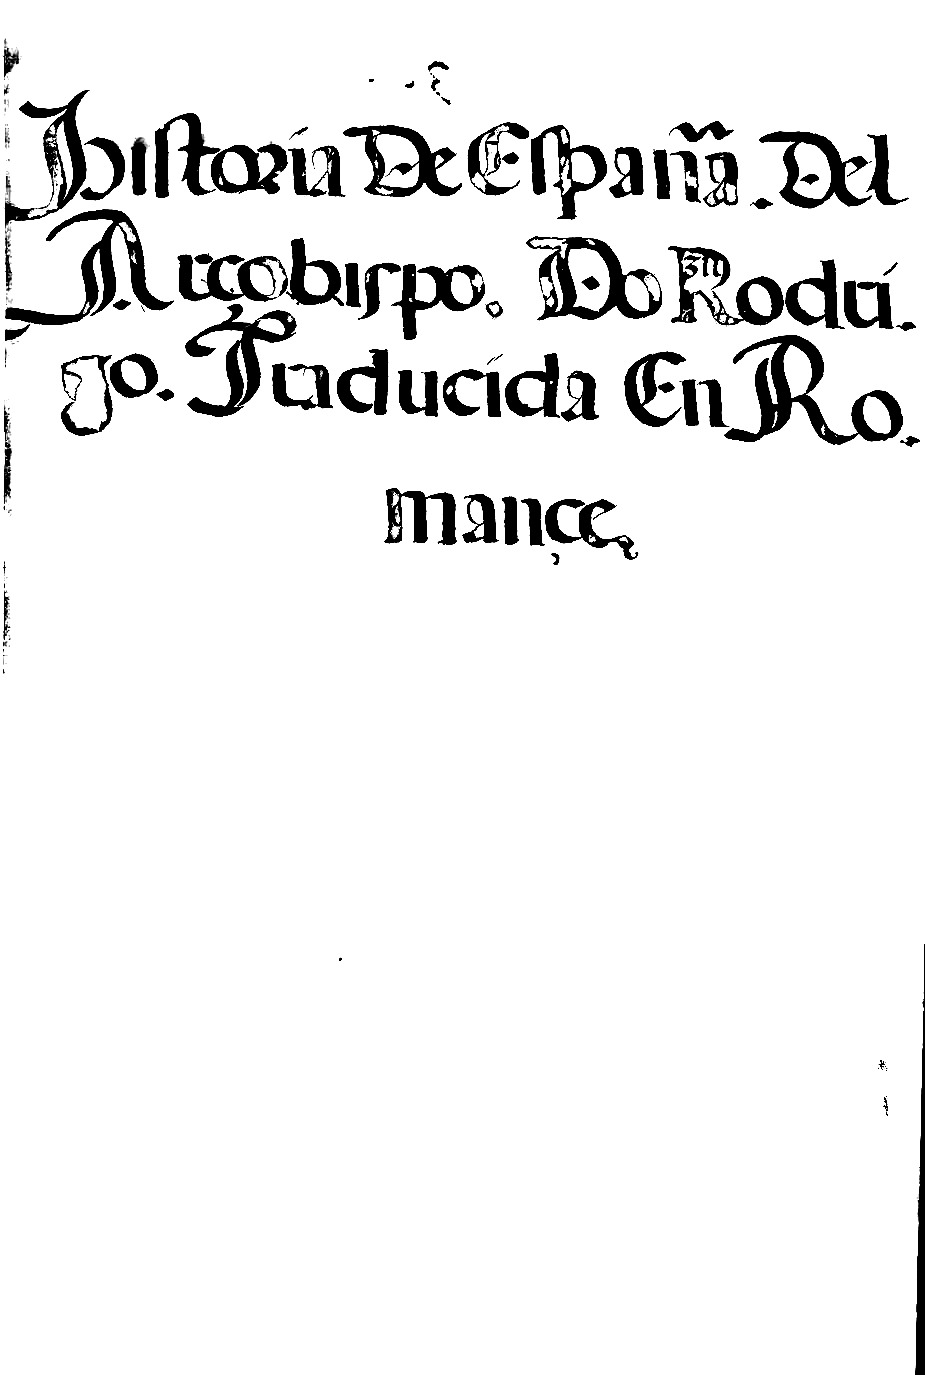 Historia De España. Del
Arçobispo. Do Rodri.
go. Traducida En Ro.
mançe